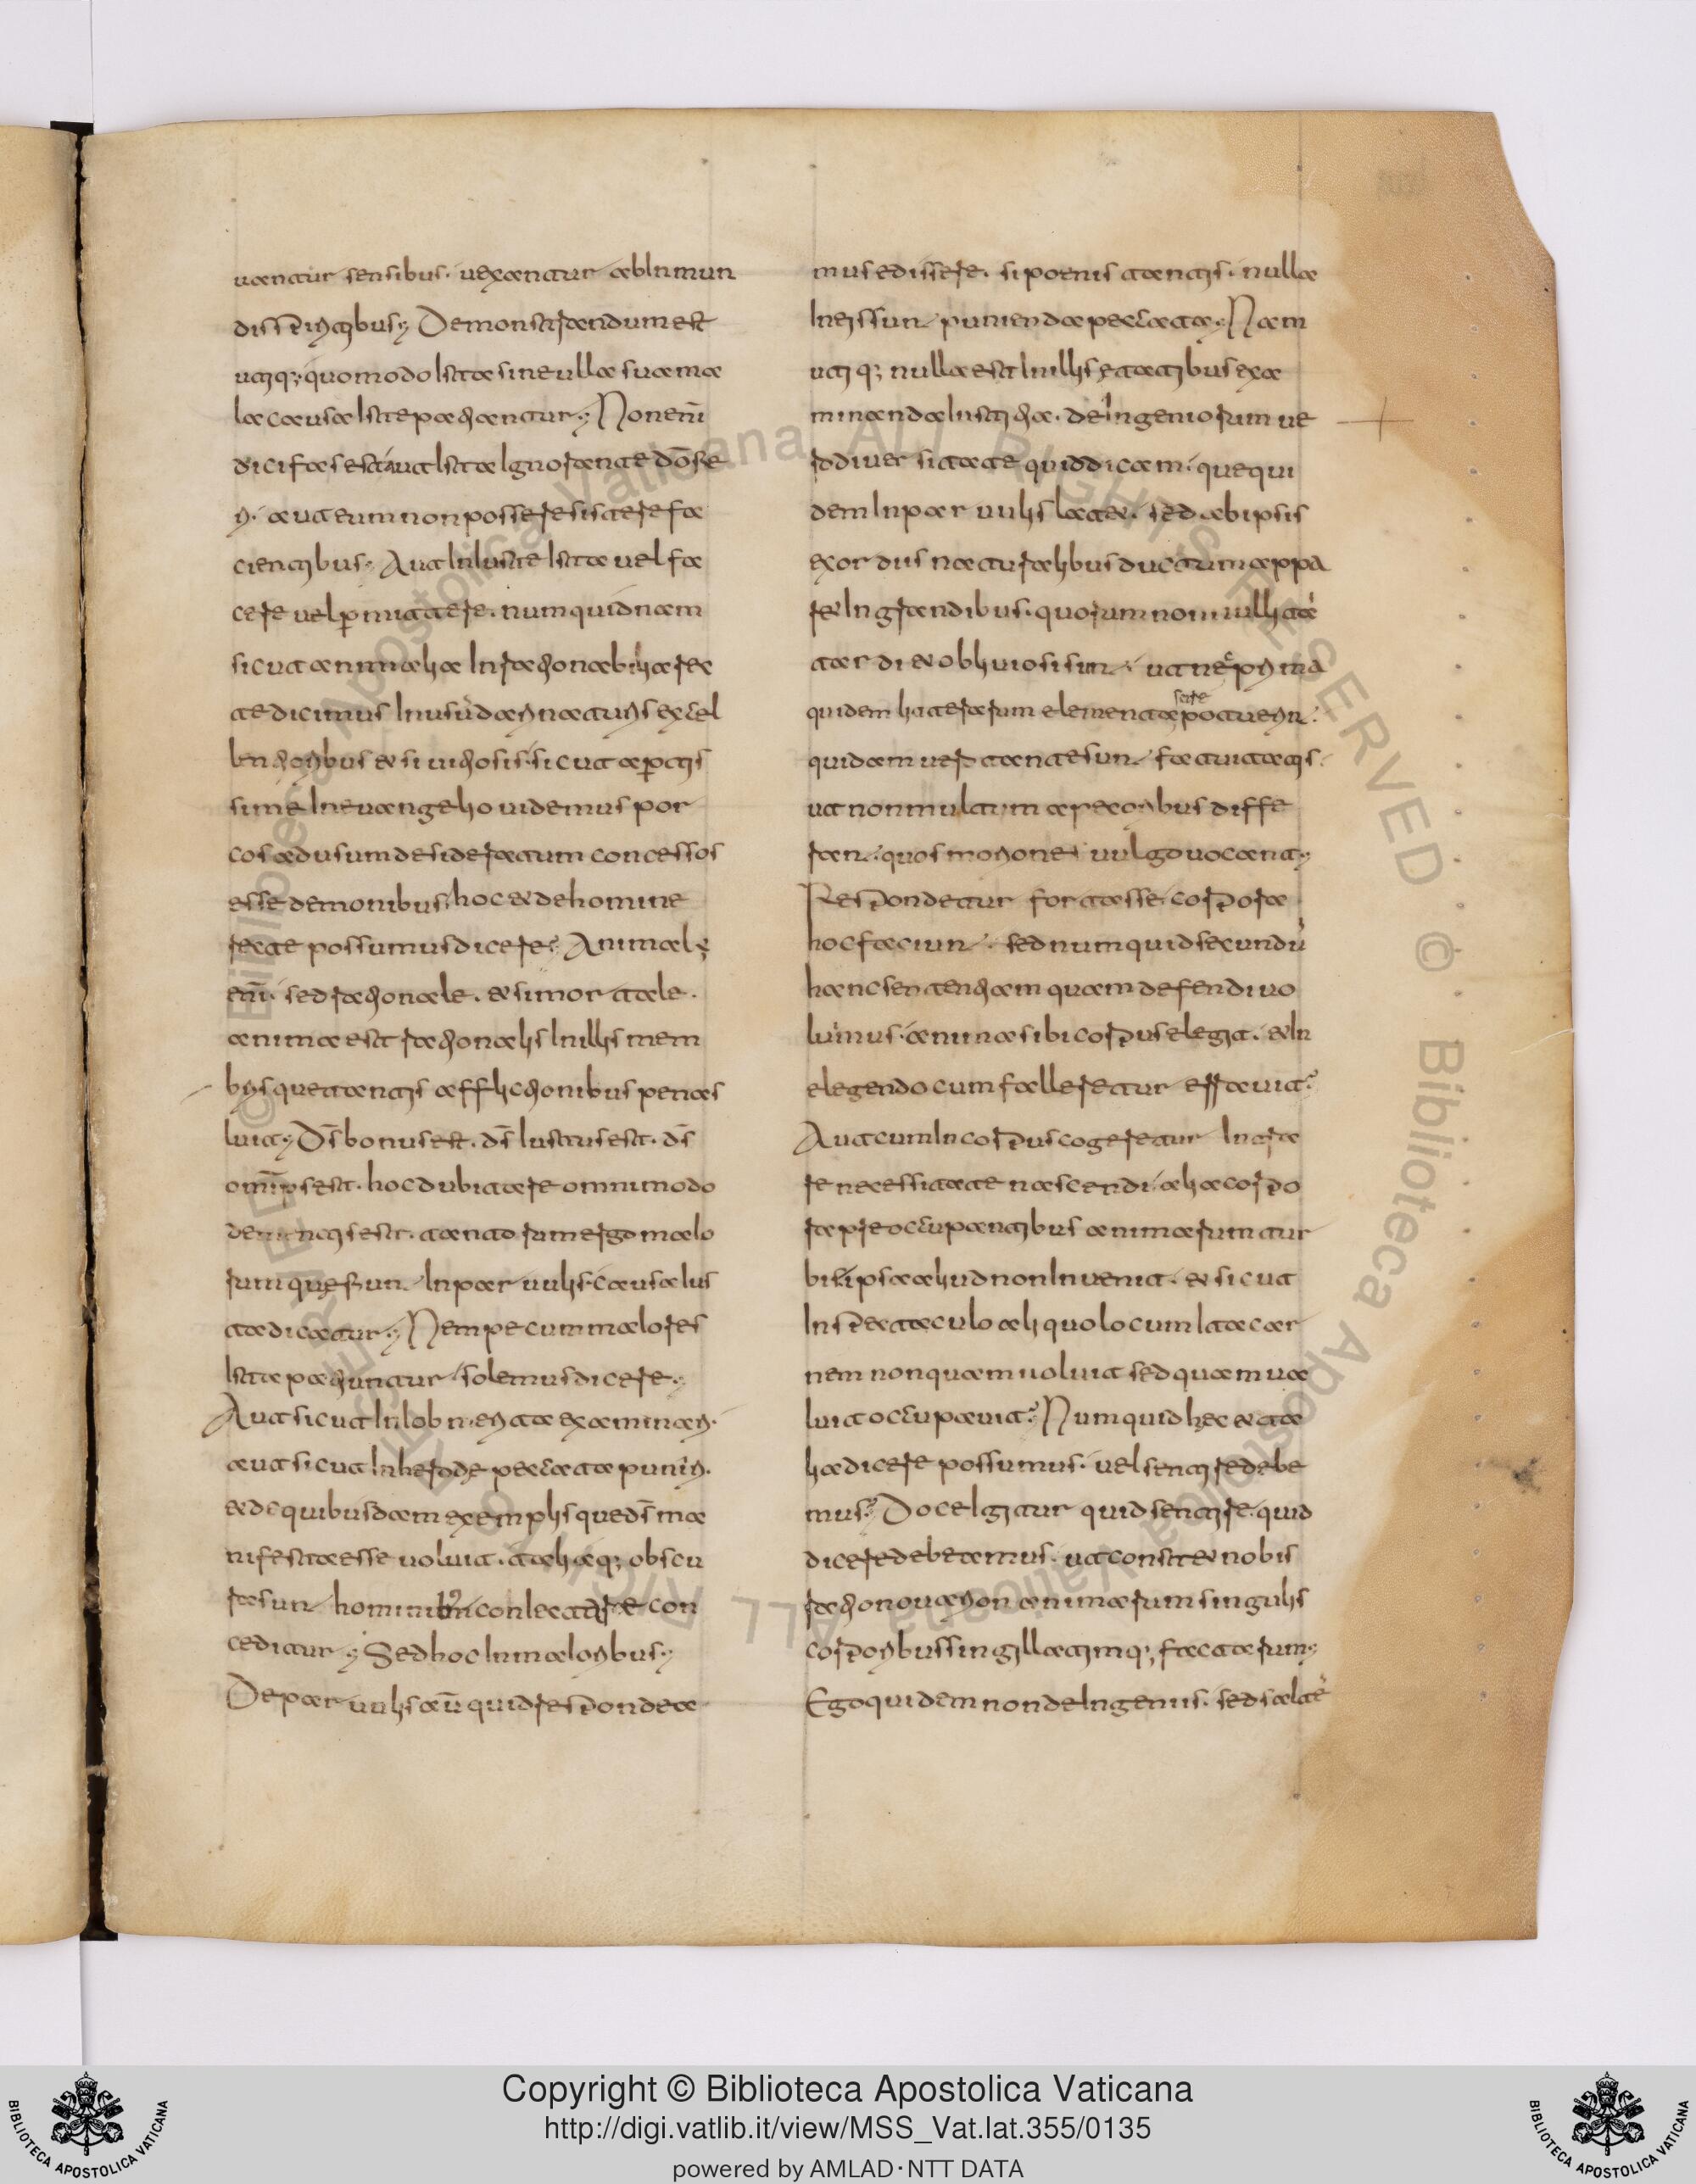 uantur sensibus. uexantur ab Inmun
dis spiritibus; Demonstrandum est
utiq; quomodo Ista sine ulla sua ma
la causa Iste patiantur; Non enī
dici fas est aut Ista Ignorante dō fie
ri. aut eum non posse resistere fa
cientibus; Aut Iniuste Ista uel fa
cere uel pmittere. numquidnam
sicut animalia Inrationabilia rec
te dicimus In usu dari naturis excel
lentioribus et si uitiosis. sicut aptis
sime In euangelio uidemus por
cos ad usum desideratum concessos
esse demonibus. hoc et de homine
recte possumus dicere? Animal ę
enī. sed rationale. et si mortale.
anima est rationalis In illis mem
bris que tantis afflictionibus penas
luit; Ds̄ bonus est. ds̄ Iustus est. ds̄
omīps est. hoc dubitare omnimodo
dementis est. tantorum ergo malo
rum que fiunt In paruulis. causa Ius
ta dicatur; Nempe cum maiores
Ista patiuntur solemus dicere;
Aut sicut In Iob merita examinari.
aut sicut In herode peccata puniri.
et de quibusdam exemplis que ds̄ ma
nifesta esse uoluit. talia q; obscu
ra sunt hominib; conlectare con
ceditur; Sed hoc In maioribus;
De paruulis aū quid respondea
mus edissere. si poenis tantis. nulla
In eis sunt punienda peccata; Nam
utiq; nulla est In illis etatibus exa
minanda Iustitia. de Ingeniorum ue
ro diuersitate quid dicam. que qui
dem In paruulis latet. sed ab ipsis
exordiis naturalibus ducta um appa
ret In grandibus. quorum nonnulli tā
tardi et obliuiosi sunt ut ne prima
quidem litterarum elementa scire potuerint.
quidam uero tante sunt fatuitatis.
ut non multum a pecoribus diffe
rant. quos moriones uulgo uocant;
Respondetur fortasse corpora
hoc faciunt. sed numquid secundū
hanc sententiam quam defendi uo
lumus. anima sibi corpus elegit. et In
elegendo cum falleretur errauit?
Aut cum In corpus cogeretur Intra
re necessitate nascendi. alia corpo
ra preoccupantibus animarum tur
bis ipsa aliud non Inuenit. et sicut
In spectaculo aliquo locum Ita car
nem non quam uoluit sed quam ua
luit occupauit? Numquid hec et ta
lia dicere possumus. uel sentire debe
mus? Doce Igitur quid sentire. quid
dicere debeamus. ut constet nobis
ratio nouarum animarum singulis
corporibus singillatimq; factarum;
Ego quidem non de Ingeniis. sed saltē
Copyright © Biblioteca Apostolica Vaticana
http://digi.vatlib.it/view/MSS_Vat.lat.355/0135
powered by AMLAD·NTT DATA
BIBLIOTECA APOSTOLICA VATICANA
BIBLIOTECA APOSTOLICA VATICANA